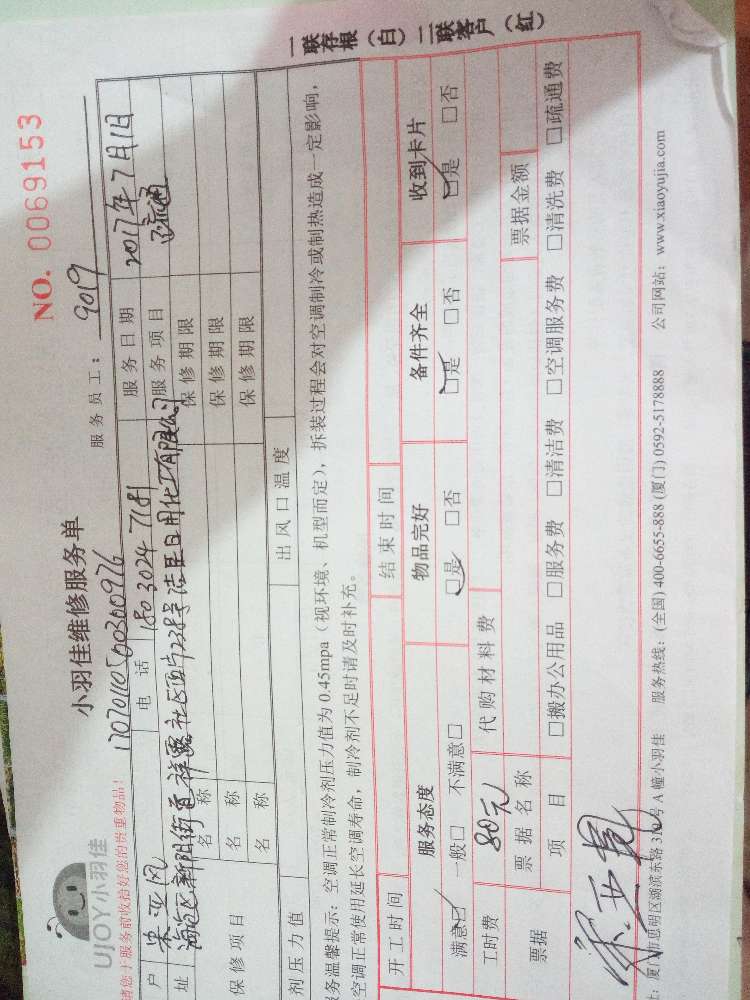 NO. 0069153
UJOY小羽佳
小羽佳维修服务单
服务员工: 9019
请您于服务前收拾好您的贵重物品!
户 亚凤 电话 180 3024 7181 服务日期 2017年7月1日
址 海沧区新阳街道祥露社区 238号洁昊日用化工有限公司 服务项目
保修项目 名称 保修期限
名称 保修期限
名称 保修期限
剂压力值 出风口温度
务温馨提示: 空调正常制冷剂压力值为 0.45mpa(视环境、机型而定), 拆装过程会对空调制冷或制热造成一定影响,
空调正常使用延长空调寿命, 制冷剂不足时请及时补充。
开工时间 结束时间
服务态度 物品完好 备件齐全 收到卡片
满意☑ 一般□ 不满意□ ☑是 □否 ☑是 □否 ☑是 □否
工时费 80元 代购材料费
票据 票据名称 票据金额
项目 □搬办公用品 □服务费 □清洁费 □空调服务费 □清洗费 □疏通费
厦门市思明区湖滨东路 号 A 幢小羽佳 服务热线: (全国) 400-6655-888 (厦门) 0592-5178888 公司网站: www.xiaoyujia.com
一联存根(白) 二联客户(红)